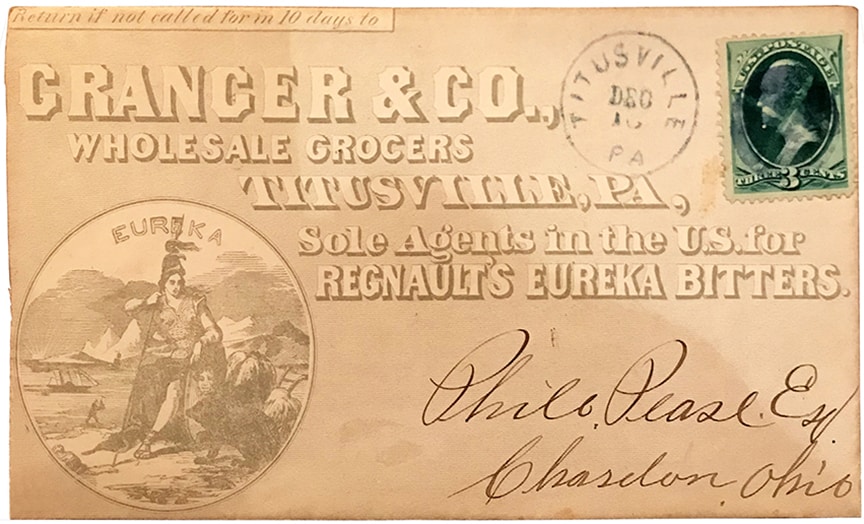 Return if not called for in 10 days to
GRANGER & CO.,
WHOLESALE GROCERS
TITUSVILLE, PA.,
Sole Agents in the U.S. for
REGNAULT'S EUREKA BITTERS.
EUREKA
TITUSVILLE
DEC
PA
U.S. POSTAGE
THREE 3 CENTS
Philo. Pease. Esq.
Chardon, Ohio